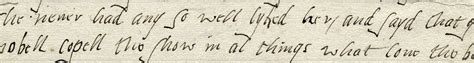 he never had any so well lyked her, and sayd that
nobell copell tho show in al things what come tho be